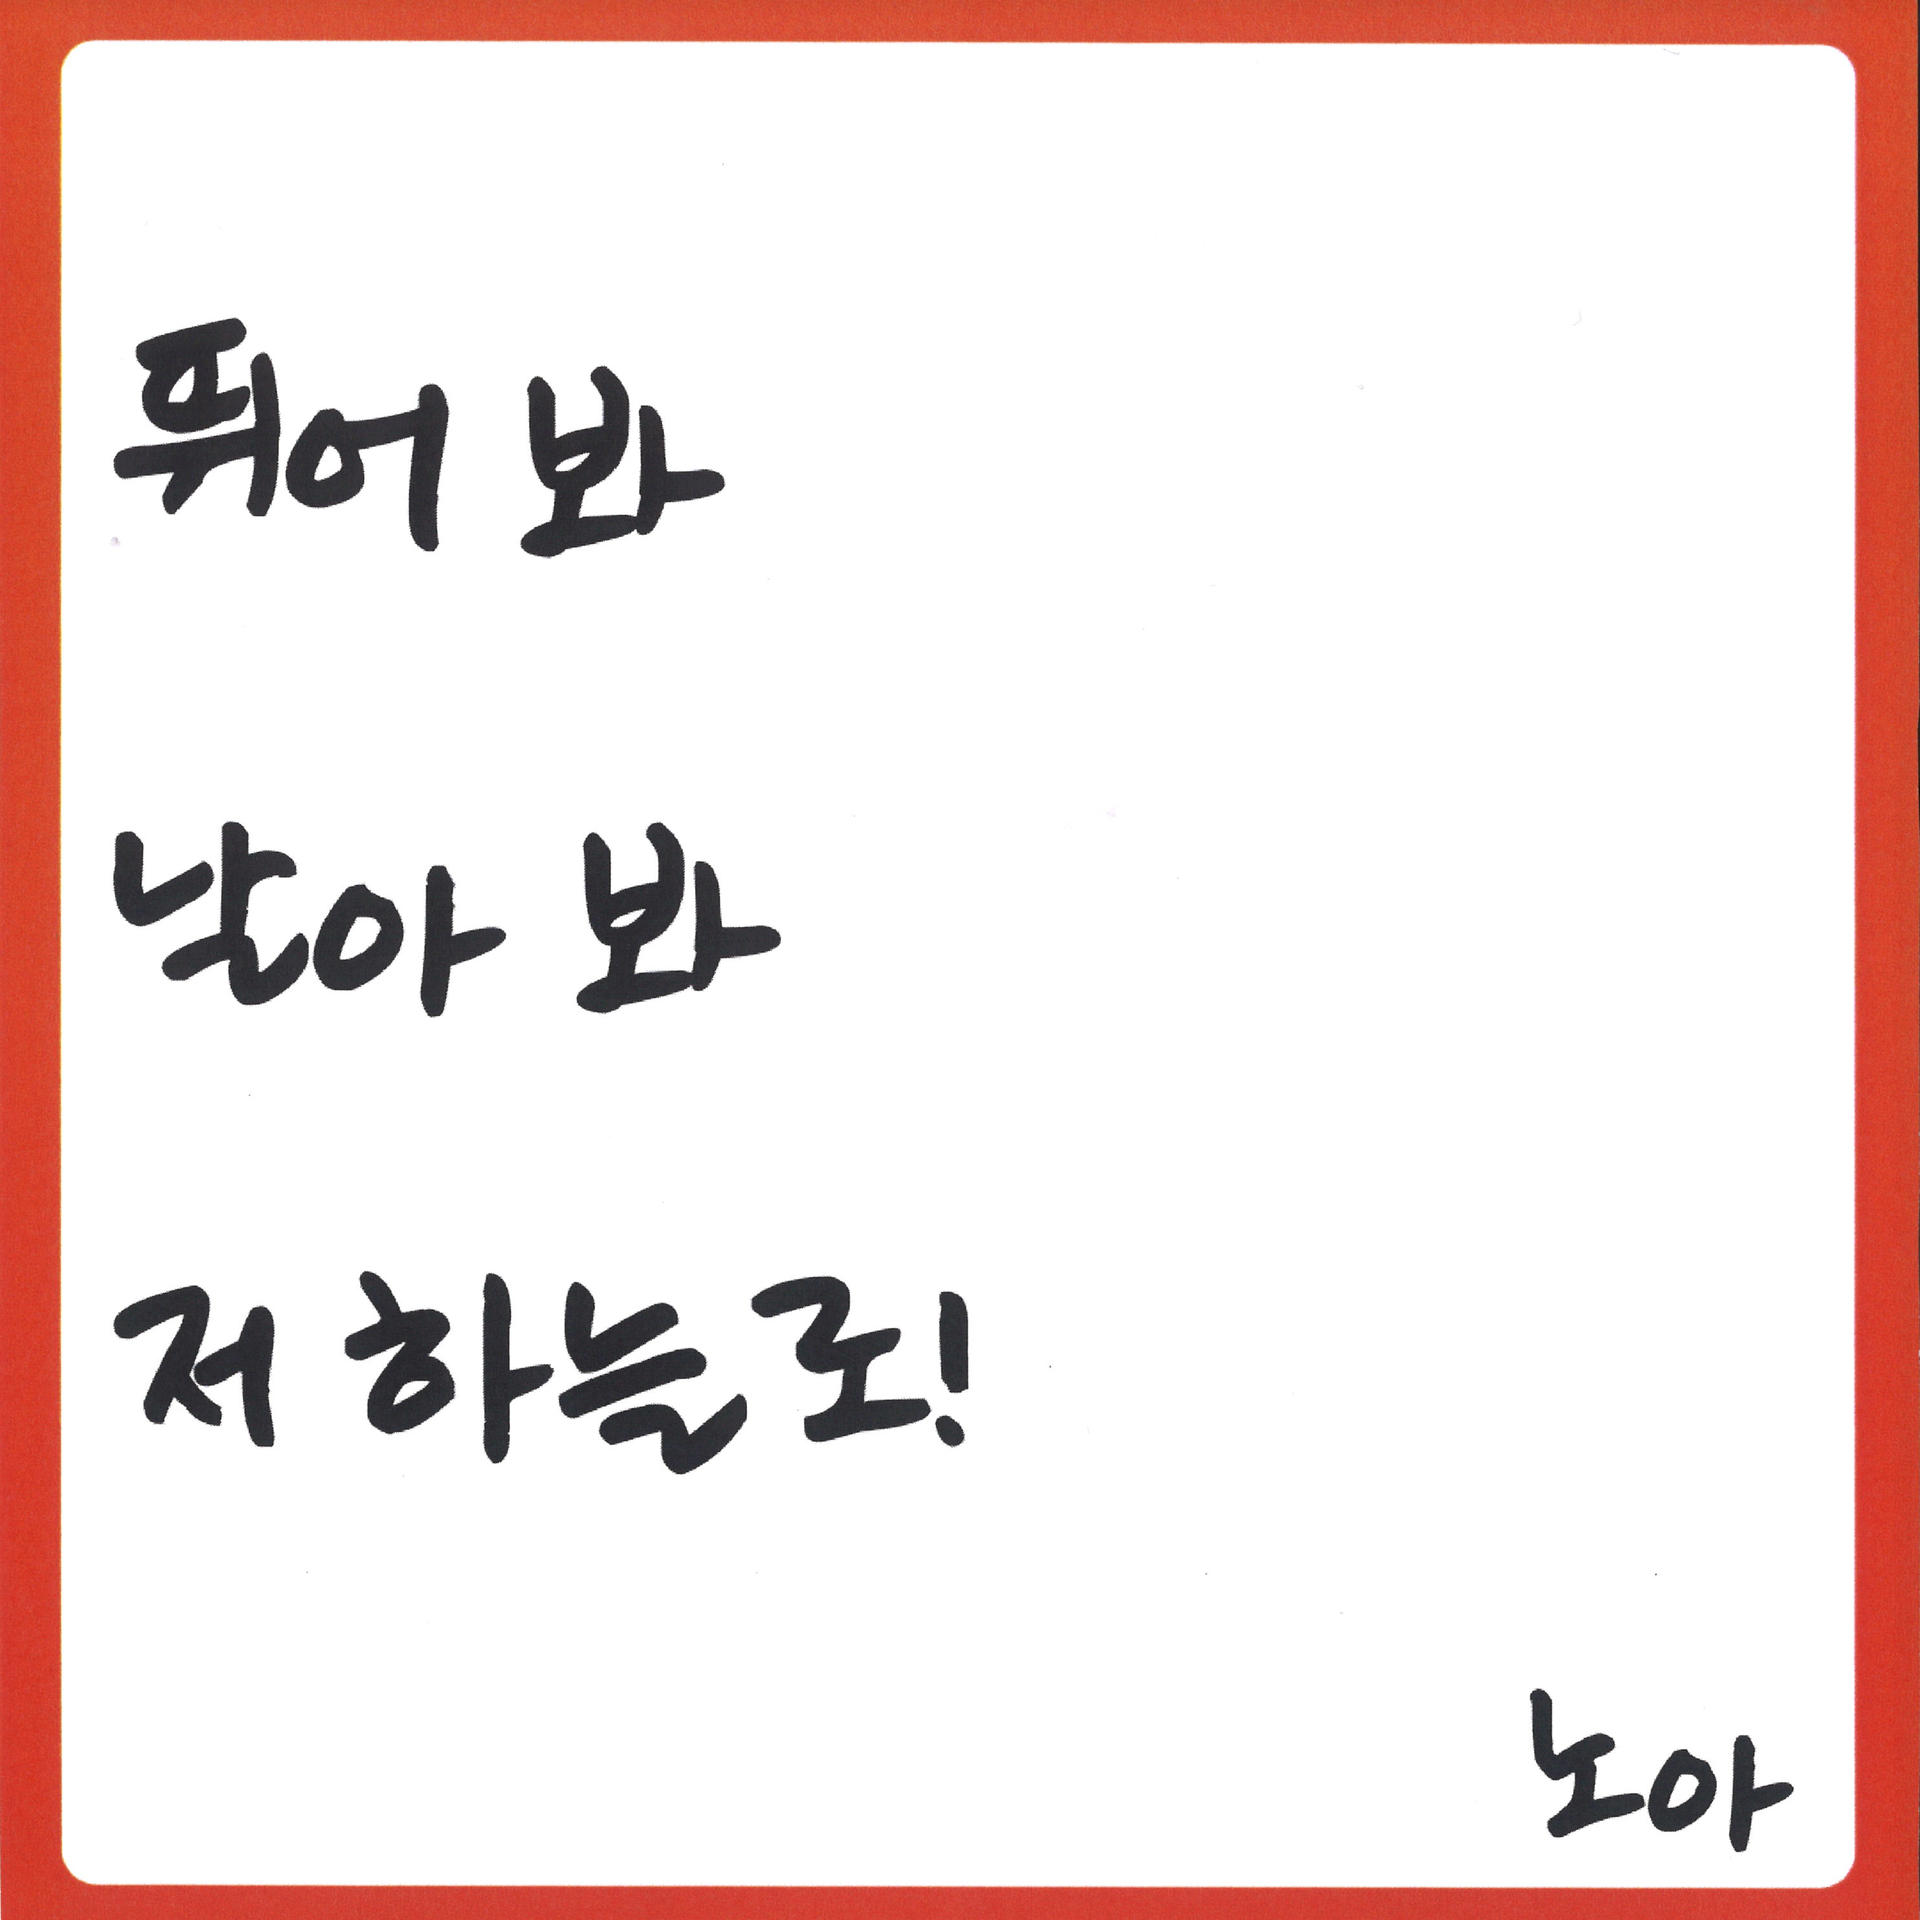 뛰어 봐
날아 봐
저 하늘로!
노아